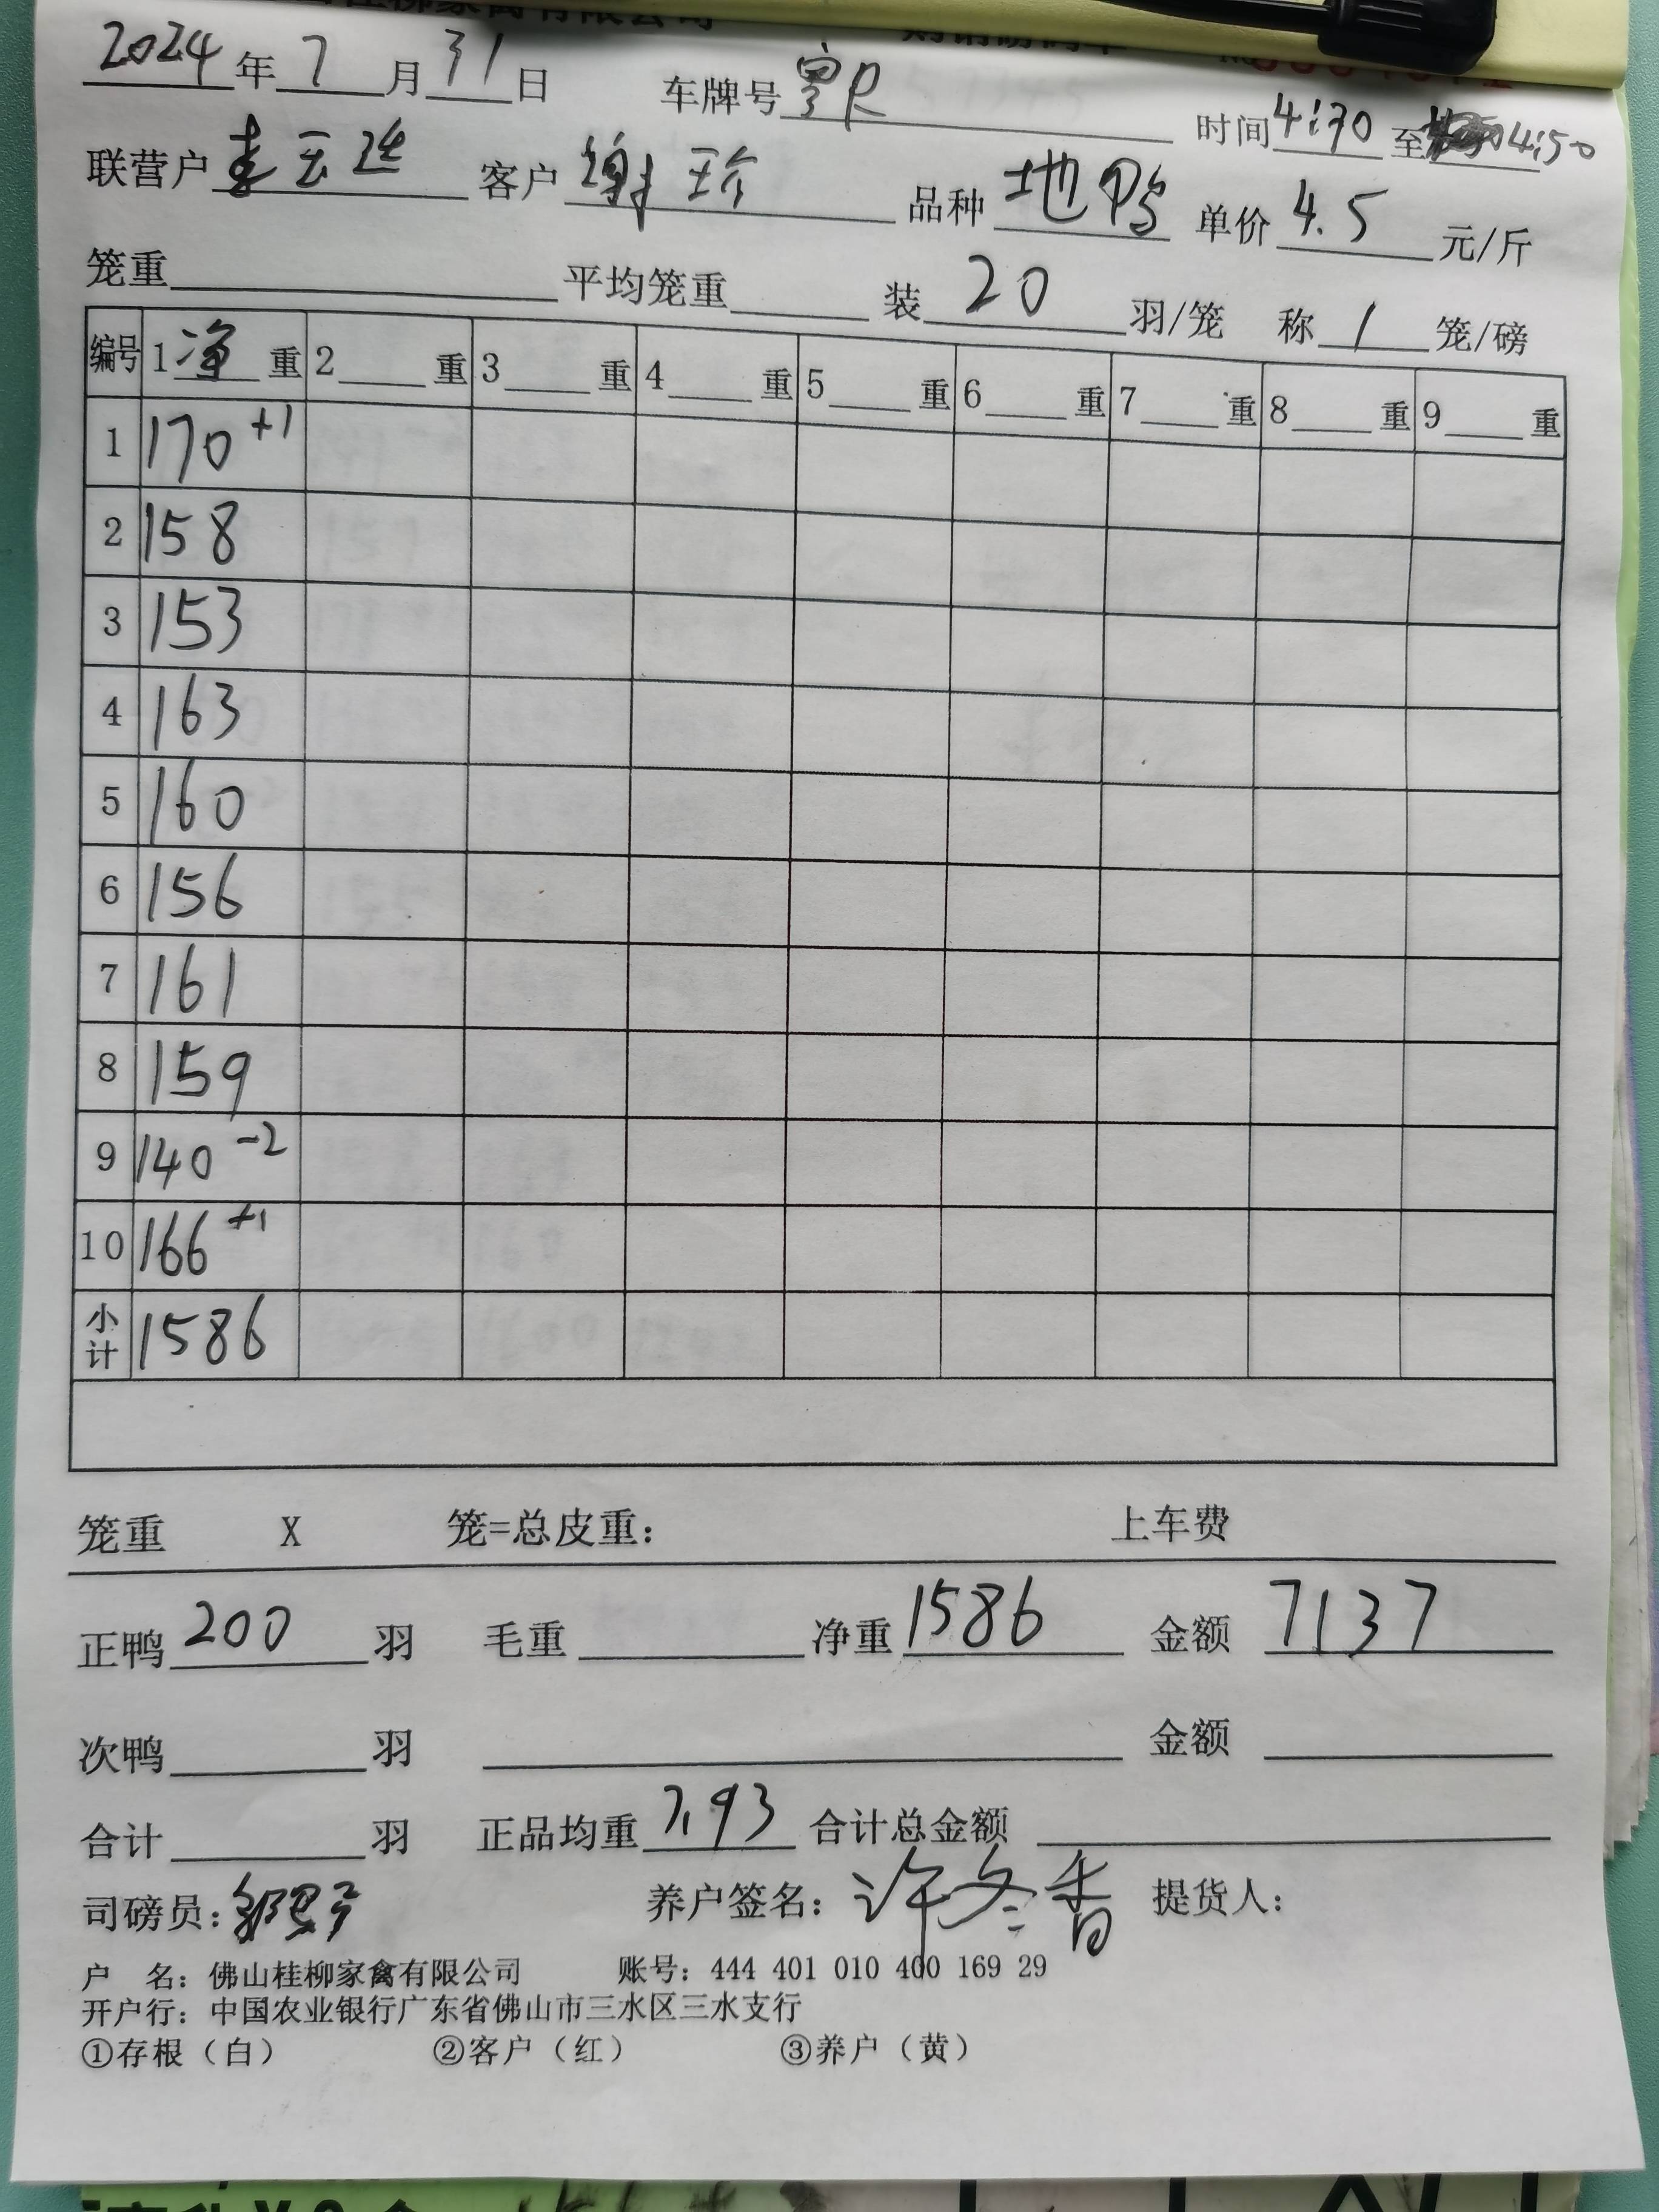 佛山桂柳家禽有限公司 购销磅码单
2024年7月31日 车牌号 时间4:30至4:50
联营户 客户谢珍 品种地鸭 单价4.5元/斤
笼重 平均笼重 装20羽/笼 称1笼/磅
编号 1净重 2重 3重 4重 5重 6重 7重 8重 9重
1 170+1
2 158
3 153
4 163
5 160
6 156
7 161
8 159
9 140-2
10 166+1
小计 1586
笼重 X 笼=总皮重: 上车费
正鸭200羽 毛重 净重1586 金额7137
次鸭 羽 金额
合计 羽 正品均重7.93 合计总金额
司磅员: 养户签名:许冬香 提货人:
户 名:佛山桂柳家禽有限公司 账号:444 401 010 400 169 29
开户行:中国农业银行广东省佛山市三水区三水支行
①存根(白) ②客户(红) ③养户(黄)